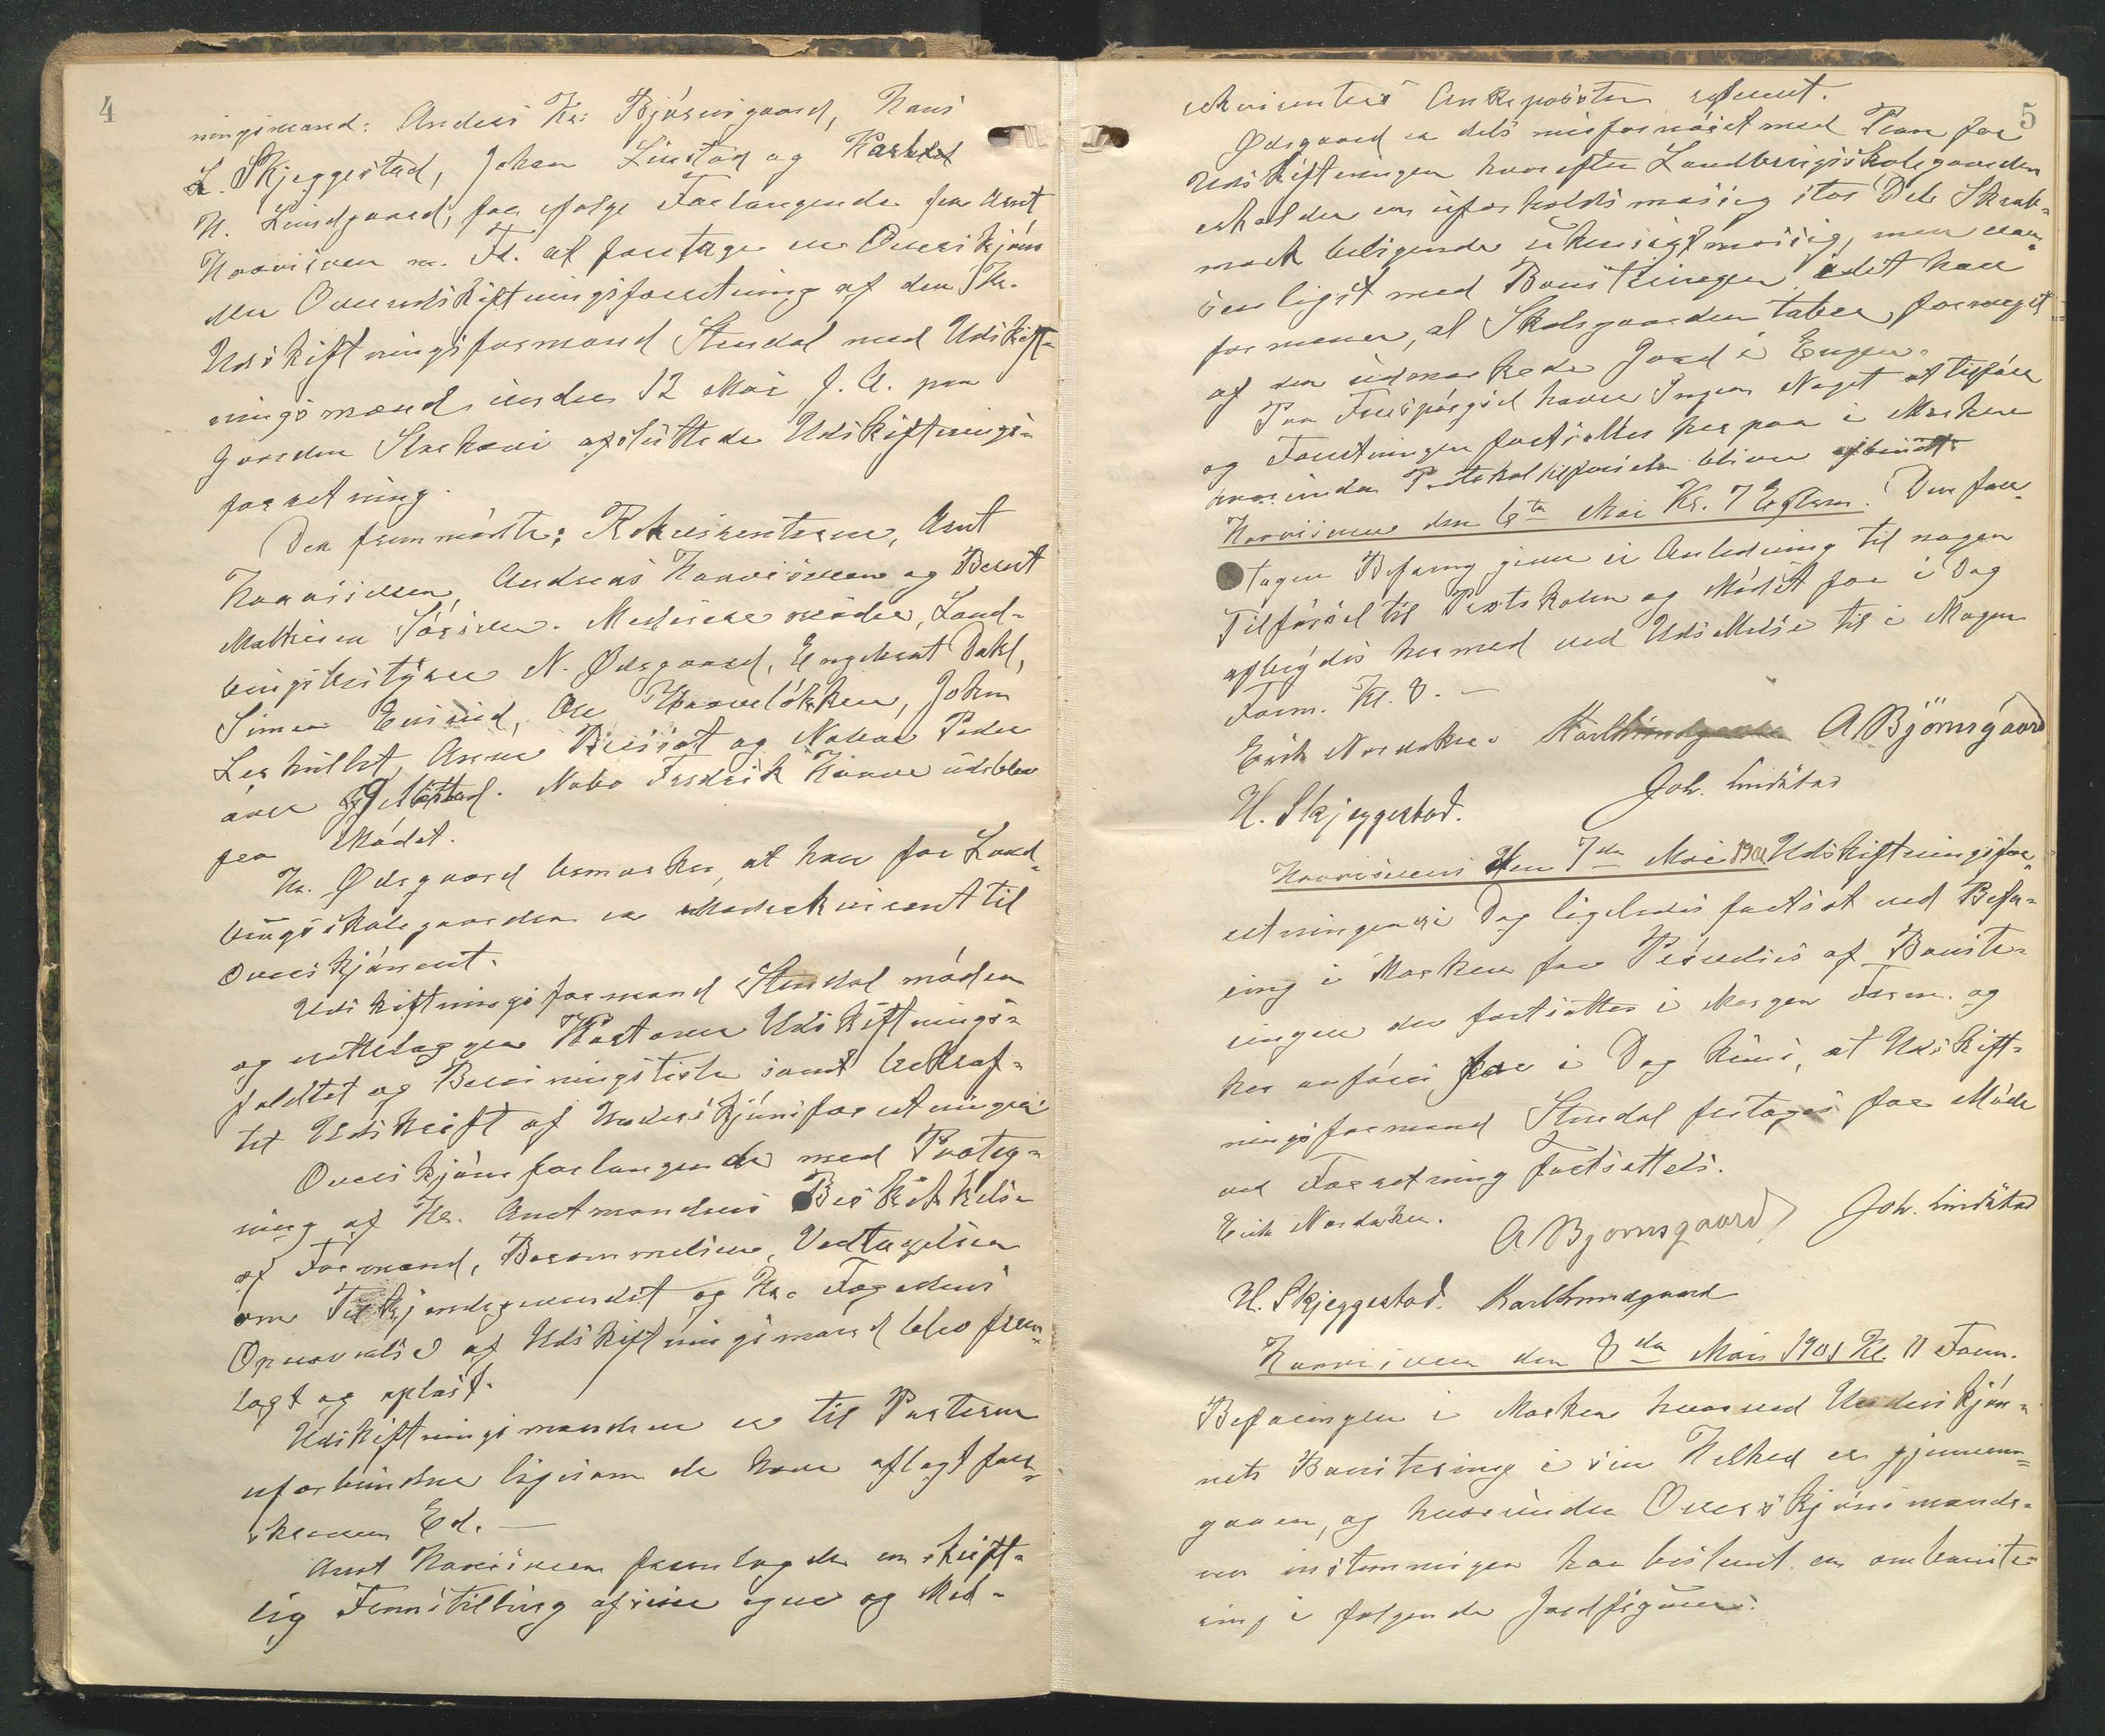 4
ningsmænd: Anders Kr: Bjørnsgaard, Hans
L. Skjeggestad, Johan Linstad og Karl
N. Lundgaard, for ifølge Forlangende fra Arnt
Narvisveen m. Fl. at foretage en Overskjøn
den Overudskiftningsforretning af den Hr.
Udskiftningsformand Stendal med Udskift-
ningsmænd under 12 Mai f. A. paa
Gaarden Starkari afsluttede Udskiftnings-
forretning.
Der fremmødte: Rekvirenterne, Arnt
Narvisveen, Andreas Narvisveen og Bernt
Mathisen Sørsveen. Medeiere møder, Land-
brugsbestyrer N. Ødegaard, Engebret Dahl,
Simen Ensrud, Ole Haavelökken, John
Lerhullet, Anne Brusrøt og Naboe Peder
over Jelstad. Nabo Fredrik Narve udeblev
fra Mødet.
Hr. Ødegaard bemærker, at han for Land-
brugsskolegaarden er Medrekvirent til
Overskjønnet.
Udskiftningsformand Stendal møder
og vedlægger Kartover Udskiftnings-
faldtet og Beregningsliste samt bekræf-
tet Udskrift af Underskjønsforretningen
Overskjønsforlangende med Paateg-
ning af Hr. Amtmandens Beskikkelse
af Formand, Berammelsen, Vedtagelsen
om Tilkjendegivendet og Hr. Fogdens
Opnævnelse af Udskiftningsmænd blev frem-
lagt og oplæst.
Udskiftningsmændene er til Parterne
uforbundne ligesom de have aflagt fore-
skreven Ed. —
Arnt Narvisveen fremlagde en skrift-
lig Fremstilling af sine egne og Med-
5
rekvirenters Ankeposter
Ødegaard er dels misfornøiet med Plan for
Udskiftningen hvorefter Landbrugsskolegaarden
skal der en uforholdsmæssig stor Del Skrab-
mark beliggende uhensigtmæssig, men væ-
sentligst med Boniteringen, idet han
formener, at Skolegaarden taber for meget
af den udmærkede Jord i Engen.
Paa Forespørgsel havde Ingen Noget at tilføre
og Forretningen fortsættes herpaa i Marken
hvorunder Protokoltilførselen bliver afbrudt.
Narvisveen den 6te Mai Kl. 7 Efterm. Den fore-
tagne Befaring giver ei Anledning til nogen
Tilførsel til Protokolen og Mødet for i Dag
afbrydes hermed ved Udsættelse til i Morgen
Form. Kl. 8. —
Erik Nordaker. Karl Lundgaard A Bjørnsgaard
H. Skjeggestad. Joh. Lindstad
Narvisveen den 7de Mai 1901 Udskiftningsfor-
retningen i Dag ligeledes fortsat ved Befa-
ring i Marken for Prøvelse af Bonite-
ringen der fortsættes i Morgen Form. og
her anføres for i Dag kuns, at Udskift-
ningsformand Stendal fritages for Møde
ved Forretning fortsættels.
Erik Nordaker. A Bjørnsgaard Joh. Lindstad
H. Skjeggestad. Karl Lundgaard
Narvisveen den 8de Mai 1901 Kl. 11 Form.
Befaringen i Marken hvorved Underskjøn-
nets Bonitering i sin Helhed er gjennem-
gaaen, og hvorunder Overskjønsmænde-
ne instemmigen har bestemt en ombonite-
ring i følgende Jordfigurer: